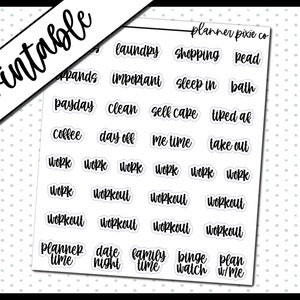 printable
planner pixie co.
laundry shopping read
important sleep in bath
payday clean self care tired af
coffee day off me time take out
work work work work work work
work workout workout workout
workout workout workout workout
planner time date night family time binge watch plan w/me